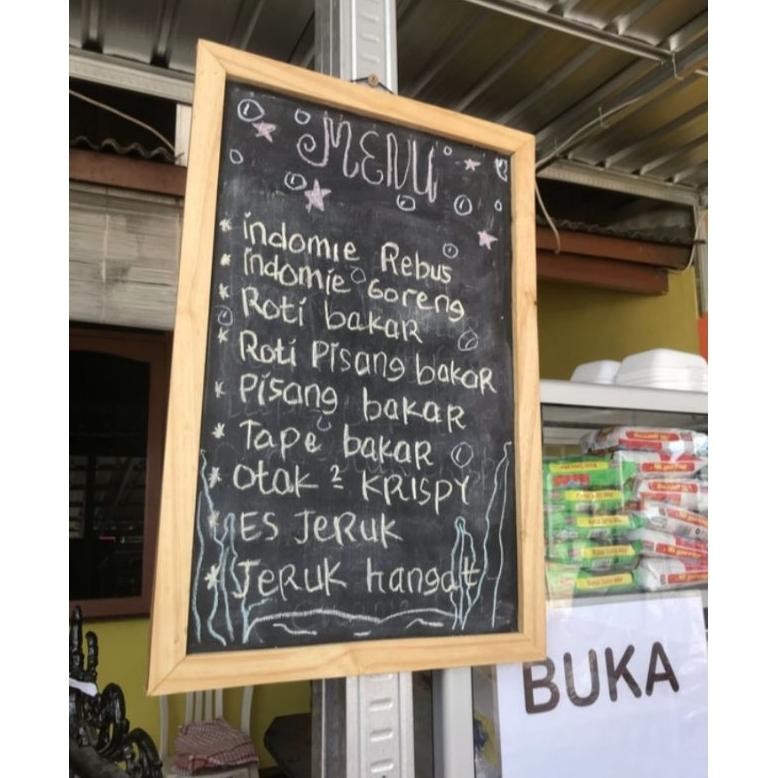 MENU
* indomie Rebus
* indomie Goreng
* Roti bakar
* Roti Pisang bakar
* Pisang bakar
* Tape bakar
* otak ² KRISPY
* ES JERUK
* JERUK hangat
BUKA